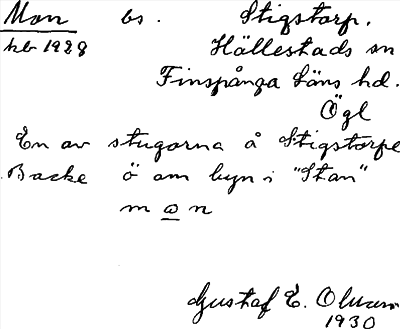 Mon bs. Stigstorp.
kb 1928 Hällestads sn
Finspånga läns hd.
Ögl
En av stugorna å Stigstorps
Backe ö om byn i "Stan"
m o n
Gustaf E.
1930